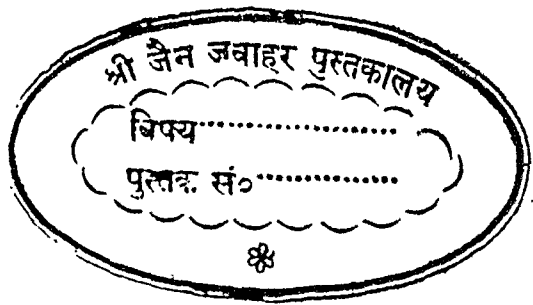 श्री जैन जवाहर पुस्तकालय
विषय....................
पुस्तक सं०................